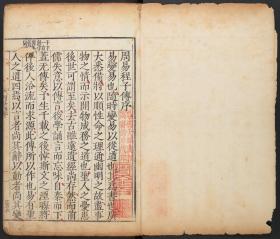 周易程子傳序
易變易也隨時變易以從道也其爲書也廣
大悉備將以順性命之理通幽明之故盡事
物之情而示開物成務之道也聖人之憂患
後世可謂至矣去古雖遠遺經尚存然而前
儒失意以傳言後學誦言而忘味自秦而下
蓋无傳矣予生千載之後悼斯文之湮晦將
俾後人沿流而求源此傳所以作也易有聖
人之道四焉以言者尚其辭以動者尚其變